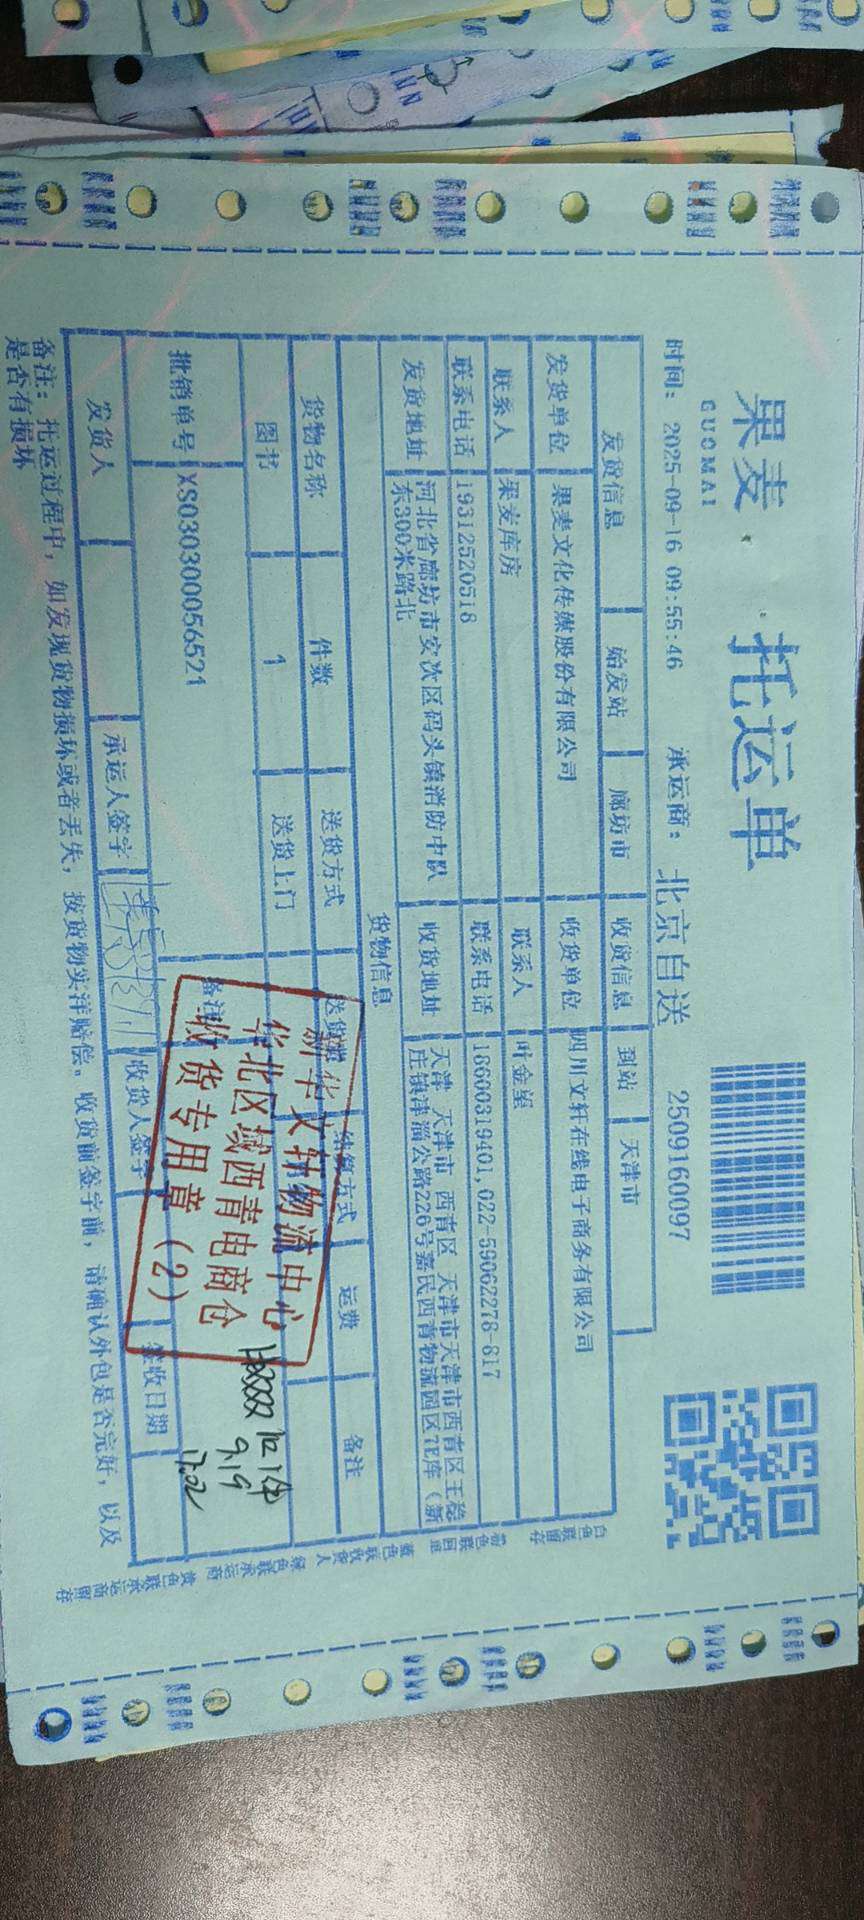 果麦 托运单
GUOMAI
2509160097
时间: 2025-09-16 09:55:46 承运商: 北京自送
发货信息 始发站 廊坊市 收货信息 到站 天津市
发货单位 果麦文化传媒股份有限公司 收货单位 四川文轩在线电子商务有限公司
联系人 果麦库房 联系人 叶金星
联系电话 19312520518 联系电话 18600319401,022-59062278-817
发货地址 河北省廊坊市安次区码头镇消防中队
东300米路北
收货地址 天津 天津市 西青区 天津市天津市西青区王稳
庄镇津淄公路226号嘉民西青物流园区化库（新
货物信息
货物名称 件数 送货方式 送货 结算方式 运费 备注
图书 1 送货上门
批销单号 XS030300056521 备注
新华文轩物流中心
华北区域西青电商仓
收货专用章（2）
9.19
17:02
发货人 承运人签字 收货人签字 签收日期
备注: 托运过程中，如发现货物损坏或者丢失，按货物实洋赔偿。收货前签字前，请确认外包是否完好，以及
是否有损坏
白色联留存
蓝色联收货人
绿色联承运商
黄色联承运商留存